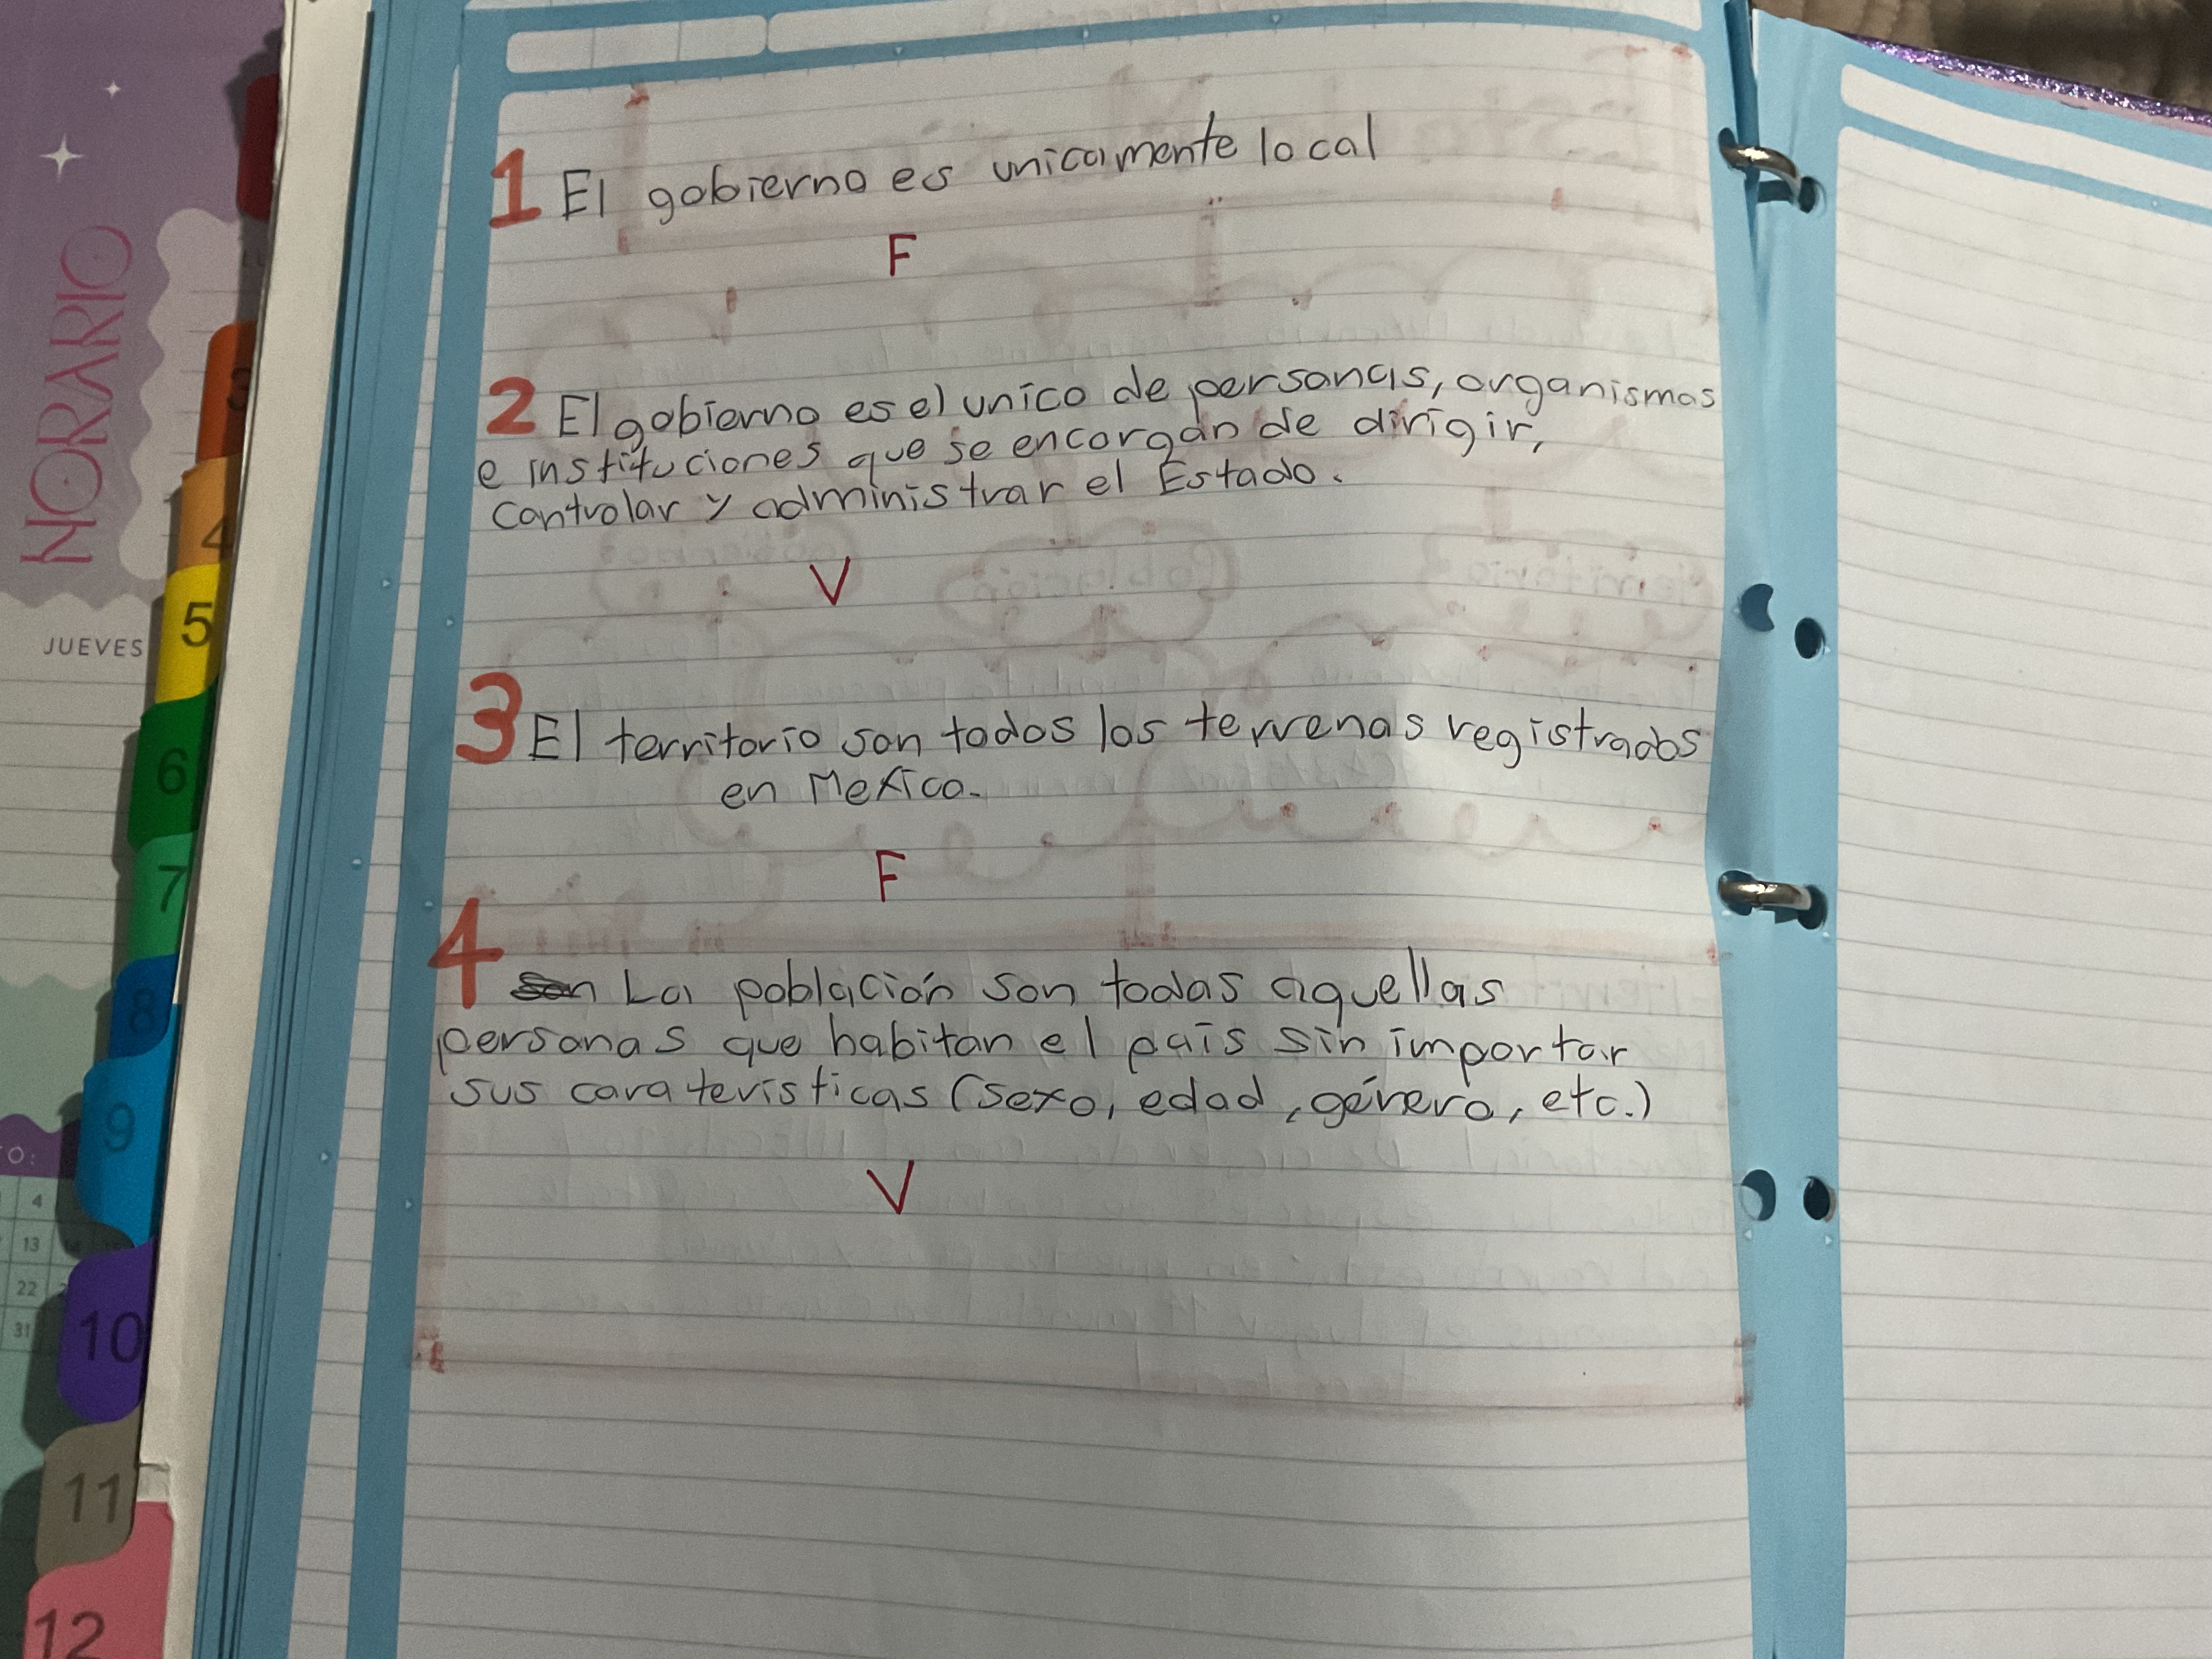 1 El gobierno es unicamente local
F
2 El gobierno es el unico de personas, organismos
e instituciones que se encargan de dirigir,
controlar y administrar el Estado.
V
3 El territorio son todos los terrenos registrados
en Mexico.
F
4 son La población son todas aquellas
personas que habitan el país sin importar
sus caraterísticas (sexo, edad, género, etc.)
V
HORARIO
JUEVES
3
4
5
6
7
8
9
10
11
12
TO:
4
13
22
31